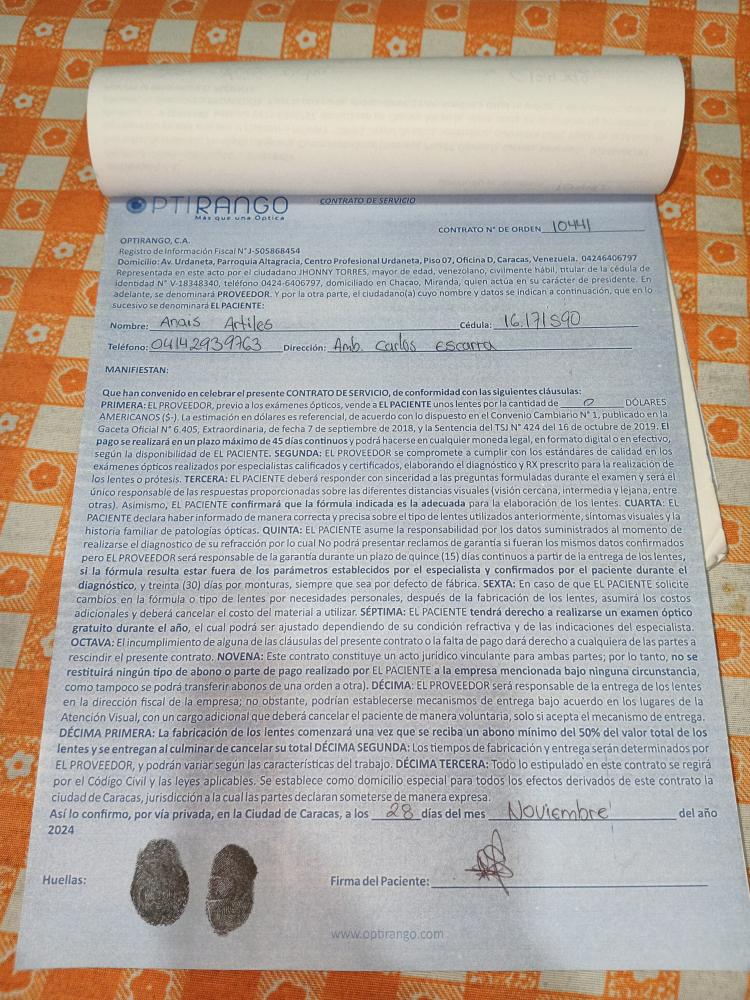 OPTIRANGO
Más que una Óptica
CONTRATO DE SERVICIO
CONTRATO N° DE ORDEN 10441
OPTIRANGO, C.A.
Registro de Información Fiscal N°J-505868454
Domicilio: Av. Urdaneta, Parroquia Altagracia, Centro Profesional Urdaneta, Piso 07, Oficina D, Caracas, Venezuela. 04246406797
Representada en este acto por el ciudadano JHONNY TORRES, mayor de edad, venezolano, civilmente hábil, titular de la cédula de
identidad N° V-18348340, teléfono 0424-6406797, domiciliado en Chacao, Miranda, quien actúa en su carácter de presidente. En
adelante, se denominará PROVEEDOR. Y por la otra parte, el ciudadano(a) cuyo nombre y datos se indican a continuación, que en lo
sucesivo se denominará EL PACIENTE:
Nombre: Anais Artiles Cédula: 16.171590
Teléfono: 04142939763 Dirección: Amb. Carlos Escarra
MANIFIESTAN:
Que han convenido en celebrar el presente CONTRATO DE SERVICIO, de conformidad con las siguientes cláusulas:
PRIMERA: EL PROVEEDOR, previo a los exámenes ópticos, vende a EL PACIENTE unos lentes por la cantidad de 0 DÓLARES
AMERICANOS ($-). La estimación en dólares es referencial, de acuerdo con lo dispuesto en el Convenio Cambiario N° 1, publicado en la
Gaceta Oficial N° 6.405, Extraordinaria, de fecha 7 de septiembre de 2018, y la Sentencia del TSJ N° 424 del 16 de octubre de 2019. El
pago se realizará en un plazo máximo de 45 días continuos y podrá hacerse en cualquier moneda legal, en formato digital o en efectivo,
según la disponibilidad de EL PACIENTE. SEGUNDA: EL PROVEEDOR se compromete a cumplir con los estándares de calidad en los
exámenes ópticos realizados por especialistas calificados y certificados, elaborando el diagnóstico y RX prescrito para la realización de
los lentes o prótesis. TERCERA: EL PACIENTE deberá responder con sinceridad a las preguntas formuladas durante el examen y será el
único responsable de las respuestas proporcionadas sobre las diferentes distancias visuales (visión cercana, intermedia y lejana, entre
otras). Asimismo, EL PACIENTE confirmará que la fórmula indicada es la adecuada para la elaboración de los lentes. CUARTA: EL
PACIENTE declara haber informado de manera correcta y precisa sobre el tipo de lentes utilizados anteriormente, síntomas visuales y la
historia familiar de patologías ópticas. QUINTA: EL PACIENTE asume la responsabilidad por los datos suministrados al momento de
realizarse el diagnostico de su refracción por lo cual No podrá presentar reclamos de garantía si fueran los mismos datos confirmados
pero EL PROVEEDOR será responsable de la garantía durante un plazo de quince (15) días continuos a partir de la entrega de los lentes,
si la fórmula resulta estar fuera de los parámetros establecidos por el especialista y confirmados por el paciente durante el
diagnóstico, y treinta (30) días por monturas, siempre que sea por defecto de fábrica. SEXTA: En caso de que EL PACIENTE solicite
cambios en la fórmula o tipo de lentes por necesidades personales, después de la fabricación de los lentes, asumirá los costos
adicionales y deberá cancelar el costo del material a utilizar. SÉPTIMA: EL PACIENTE tendrá derecho a realizarse un examen óptico
gratuito durante el año, el cual podrá ser ajustado dependiendo de su condición refractiva y de las indicaciones del especialista.
OCTAVA: El incumplimiento de alguna de las cláusulas del presente contrato o la falta de pago dará derecho a cualquiera de las partes a
rescindir el presente contrato. NOVENA: Este contrato constituye un acto jurídico vinculante para ambas partes; por lo tanto, no se
restituirá ningún tipo de abono o parte de pago realizado por EL PACIENTE a la empresa mencionada bajo ninguna circunstancia,
como tampoco se podrá transferir abonos de una orden a otra). DÉCIMA: EL PROVEEDOR será responsable de la entrega de los lentes
en la dirección fiscal de la empresa; no obstante, podrían establecerse mecanismos de entrega bajo acuerdo en los lugares de la
Atención Visual, con un cargo adicional que deberá cancelar el paciente de manera voluntaria, solo si acepta el mecanismo de entrega.
DÉCIMA PRIMERA: La fabricación de los lentes comenzará una vez que se reciba un abono mínimo del 50% del valor total de los
lentes y se entregan al culminar de cancelar su total DÉCIMA SEGUNDA: Los tiempos de fabricación y entrega serán determinados por
EL PROVEEDOR, y podrán variar según las características del trabajo. DÉCIMA TERCERA: Todo lo estipulado en este contrato se regirá
por el Código Civil y las leyes aplicables. Se establece como domicilio especial para todos los efectos derivados de este contrato la
ciudad de Caracas, jurisdicción a la cual las partes declaran someterse de manera expresa.
Así lo confirmo, por vía privada, en la Ciudad de Caracas, a los 28 días del mes Noviembre del año
2024
Huellas:
Firma del Paciente:
www.optirango.com